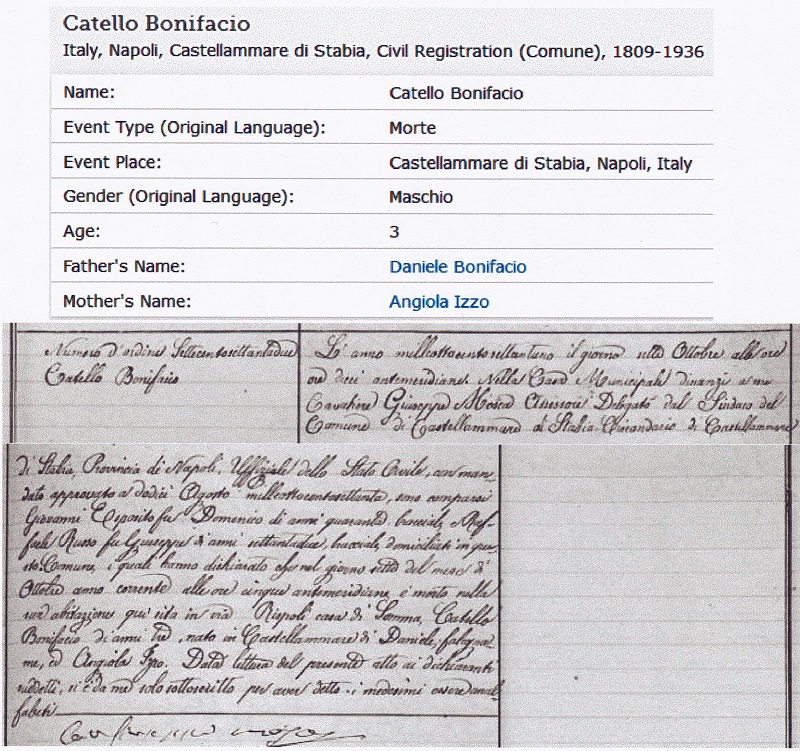 Catello Bonifacio
Italy, Napoli, Castellammare di Stabia, Civil Registration (Comune), 1809-1936
Name: Catello Bonifacio
Event Type (Original Language): Morte
Event Place: Castellammare di Stabia, Napoli, Italy
Gender (Original Language): Maschio
Age: 3
Father's Name: Daniele Bonifacio
Mother's Name: Angiola Izzo
Numero d'ordine Settecentosettantadue
Catello Bonifacio
L'anno milleottocentosettantuno il giorno sette Ottobre alle ore
ore dieci antimeridiane Nella Casa Municipale dinanzi a me
Cavaliere Giuseppe Mosca Assessore Delegato dal Sindaco del
Comune di Castellammare di Stabia Circondario di Castellammare
di Stabia, Provincia di Napoli, Uffiziale dello Stato Civile, con man-
dato approvato a dodici Agosto milleottocentosettanta, sono comparsi
Giovanni Esposito fu Domenico di anni quaranta, bracciale, Raf-
faele Russo fu Giuseppe di anni settantadue, bracciale, domiciliati in que-
sto Comune, i quali hanno dichiarato che nel giorno sette del mese di
Ottobre anno corrente alle ore cinque antimeridiane, è morto nella
sua abitazione qui sita in via Rispoli casa di Somma, Catello
Bonifacio di anni tre, nato in Castellammare di Daniele, falegna-
me, ed Angiola Izzo. Data lettura del presente atto ai dichiaranti
suddetti, si è da me solo sottoscritto per aver detto i medesimi essere anal-
fabeti